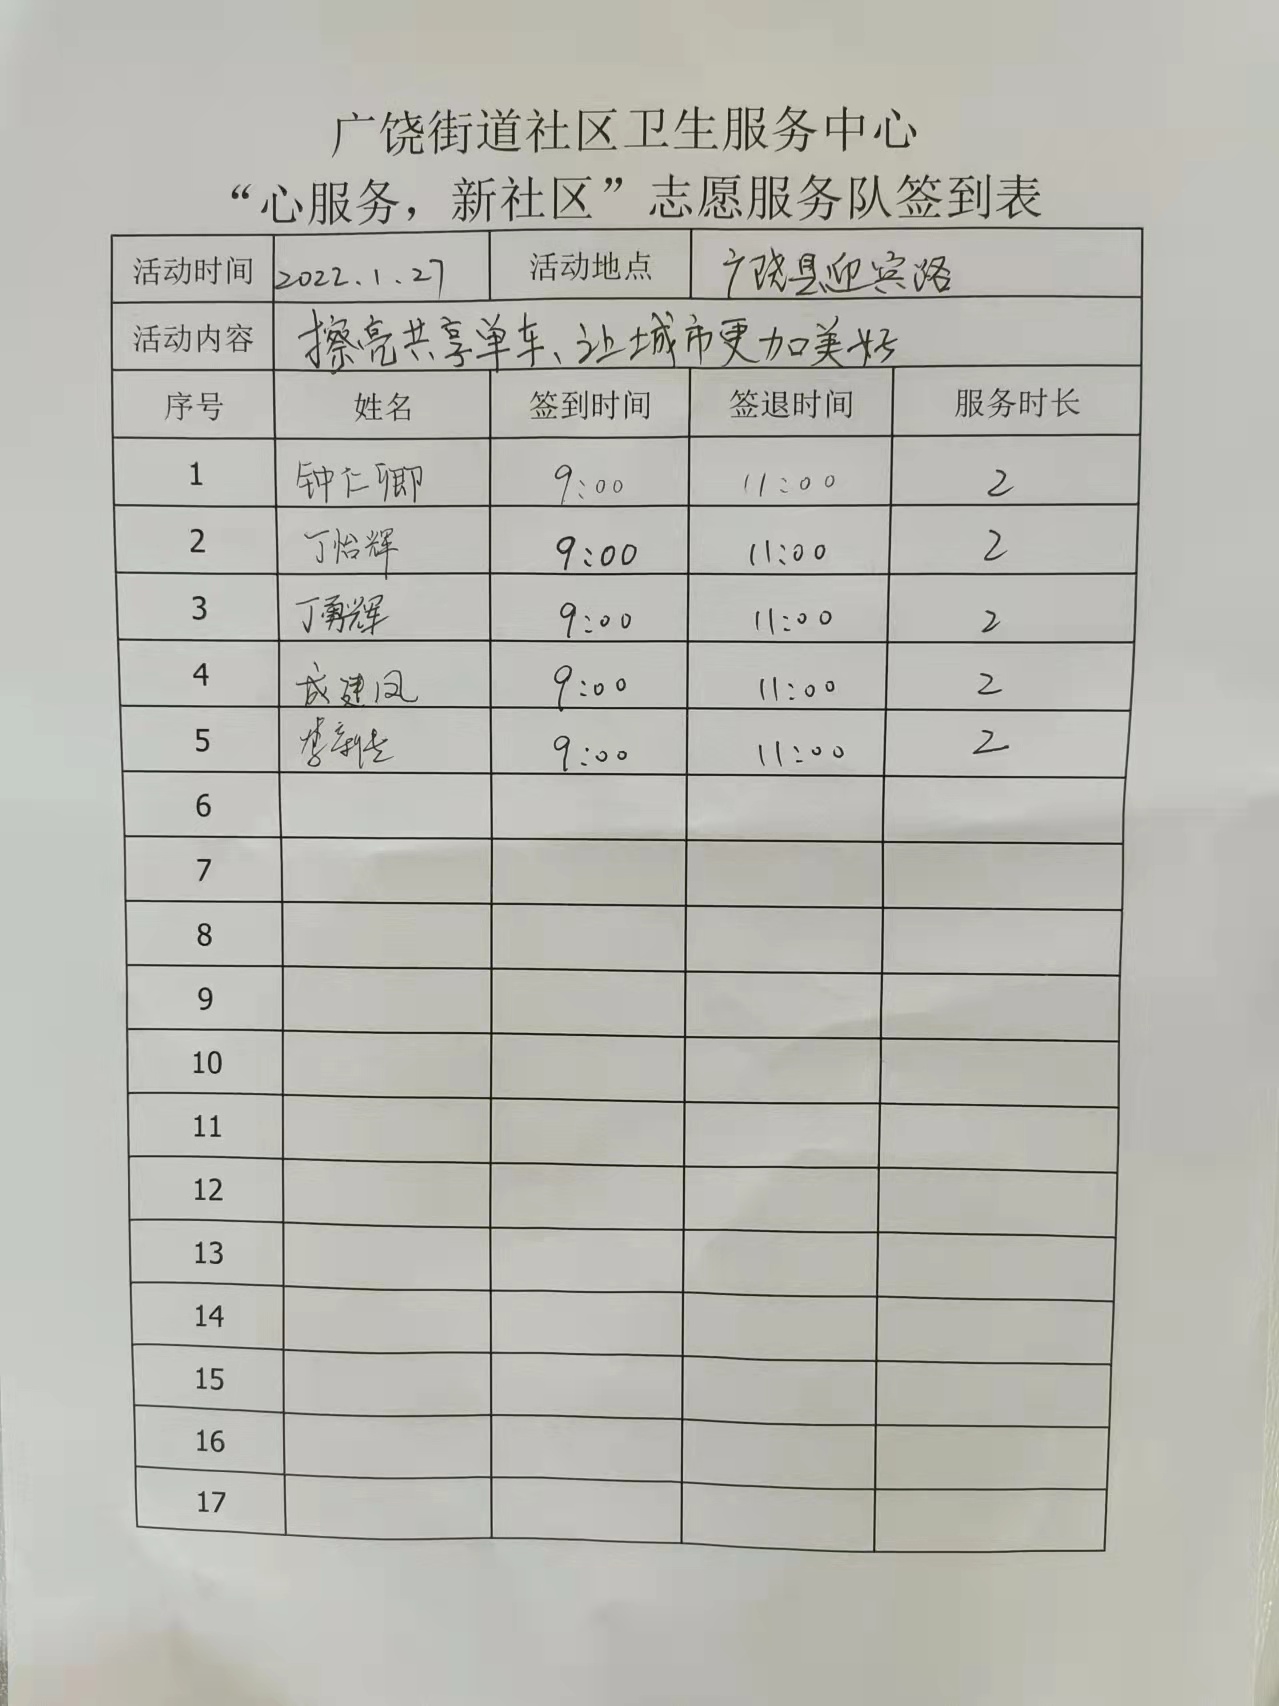 广饶街道社区卫生服务中心
“心服务，新社区”志愿服务队签到表
活动时间 2022.1.27 活动地点 广饶县迎宾路
活动内容 擦亮共享单车、让城市更加美好
序号 姓名 签到时间 签退时间 服务时长
1 钟仁卿 9:00 11:00 2
2 丁怡辉 9:00 11:00 2
3 丁勇辉 9:00 11:00 2
4 成建凤 9:00 11:00 2
5 李新 9:00 11:00 2
6
7
8
9
10
11
12
13
14
15
16
17